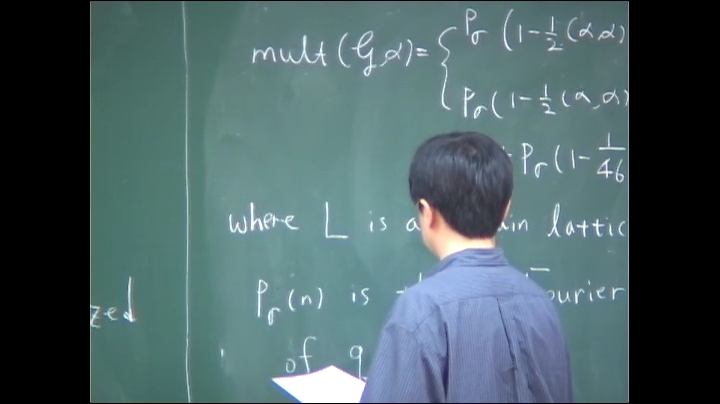 mult(𝒢,α)= { Pσ(1-½(α,α)
Pσ(1-½(α,α)
Pσ(1-1/46
where L is a in lattic
zed
Pσ(n) is ourier
of q